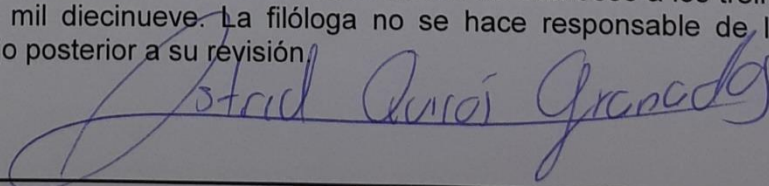 mil diecinueve. La filóloga no se hace responsable de l
o posterior a su revisión.
Astrid Quirós Granados